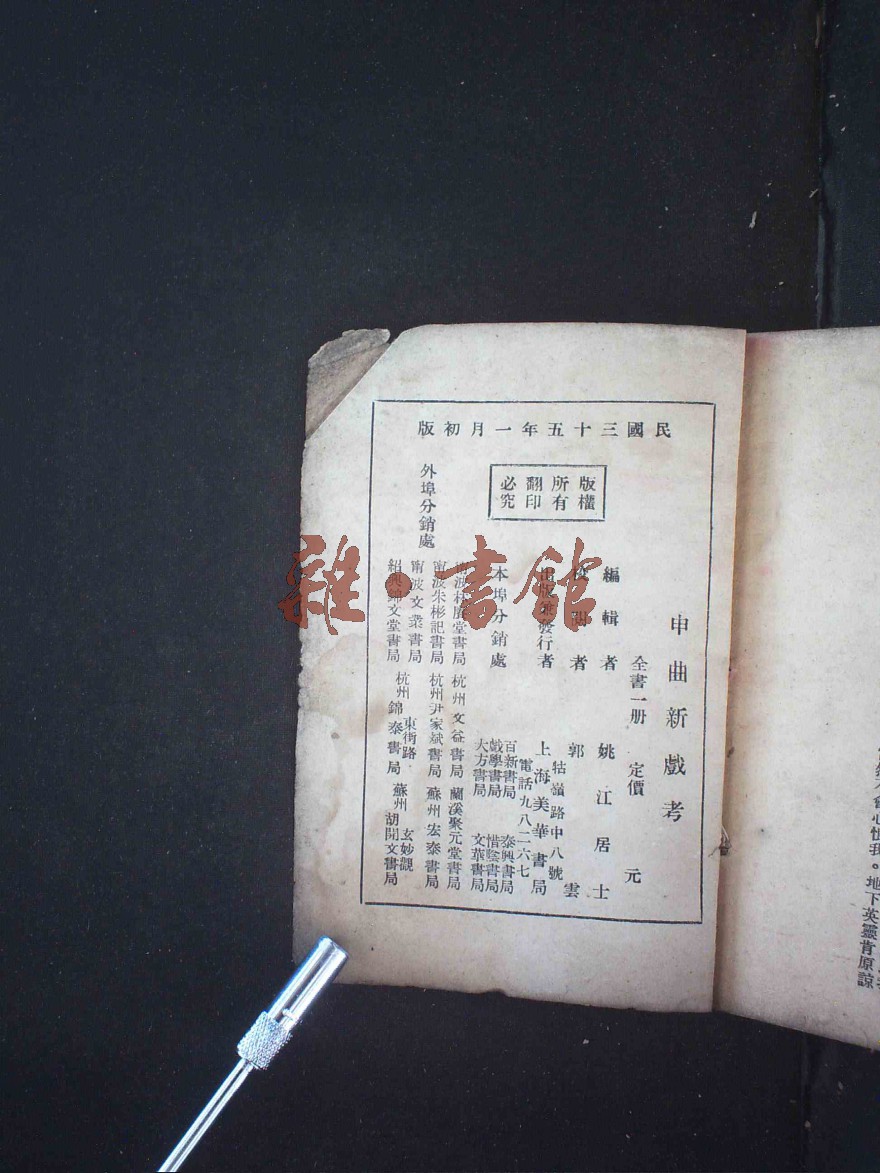 民國三十五年一月初版
版權所有
翻印必究
申曲新戲考
全書一册 定價 元
編輯者 姚江居士
者 郭雲
出版兼發行者 上海美華書局
牯嶺路中八號
電話九八二六七
本埠分銷處
百新書局 泰興書局
戲學書局 惜陰書局
大方書局 文華書局
外埠分銷處
波林 堂書局 杭州文益書局 蘭溪聚元堂書局
甯波朱彬記書局 杭州尹家斌書局 蘇州宏泰書局
甯波文業書局 杭州東街路錦泰書局 蘇州玄妙觀胡開文書局
紹興錦文堂書局
雜·書館
會心怪我。地下英靈肯原諒